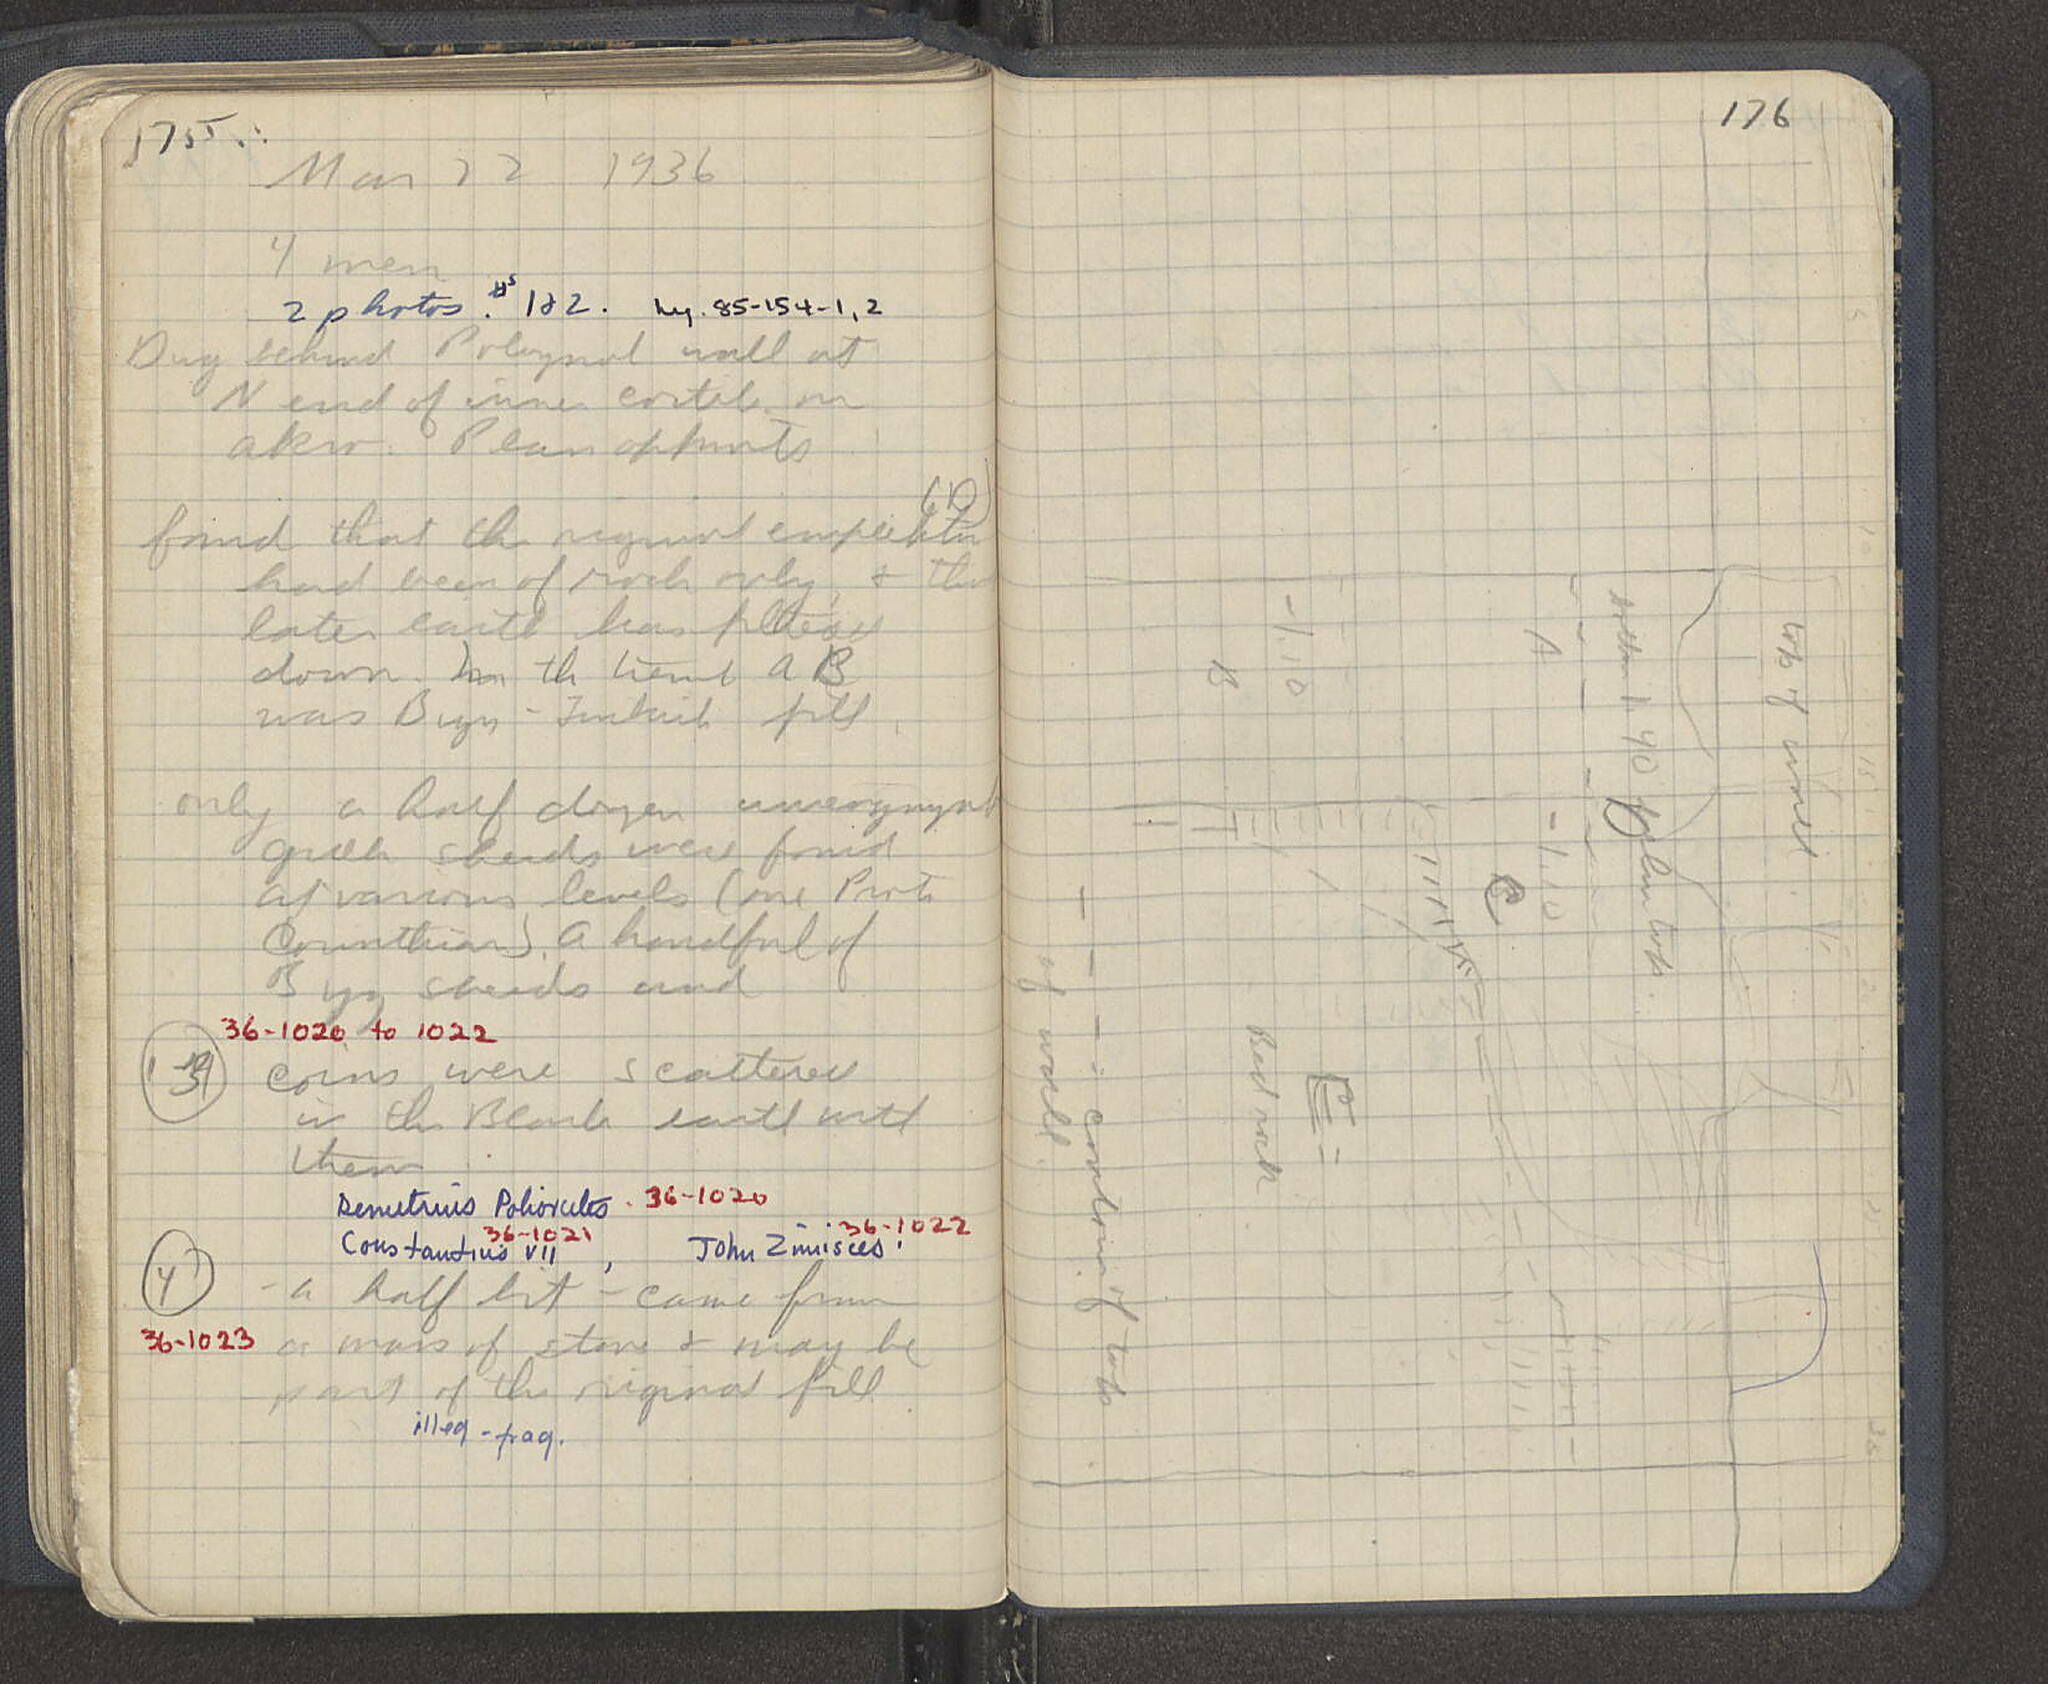 175
Mar 22 1936
4 men
2 photos. #s 1 & 2. Ny. 85-154-1, 2
Dug behind Polygonal wall at
N end of inner cortile on
akro. Plan opposite
(D)
found that the original
had been of rock only, & the
later earth has filtered
down. In the trench A B
was Byz-Turkish fill.
only a half dozen
Greek sherds were found
at various levels (one Proto
Corinthian). A handful of
Byz sherds and
36-1020 to 1022
1-3 coins were scattered
in the Black earth with
them
Demetrius Poliorcetes. 36-1020
36-1021 36-1022
Constantius VII, John Zimisces.
4 - a half bit - came from
36-1023 a mass of stone & may be
part of the original fill
illeg - frag.
176
top of wall.
bottom 1.40 below top.
A
-1.10
C
-1.10
B
E =
Bed rock
--- = contour of top
of wall.